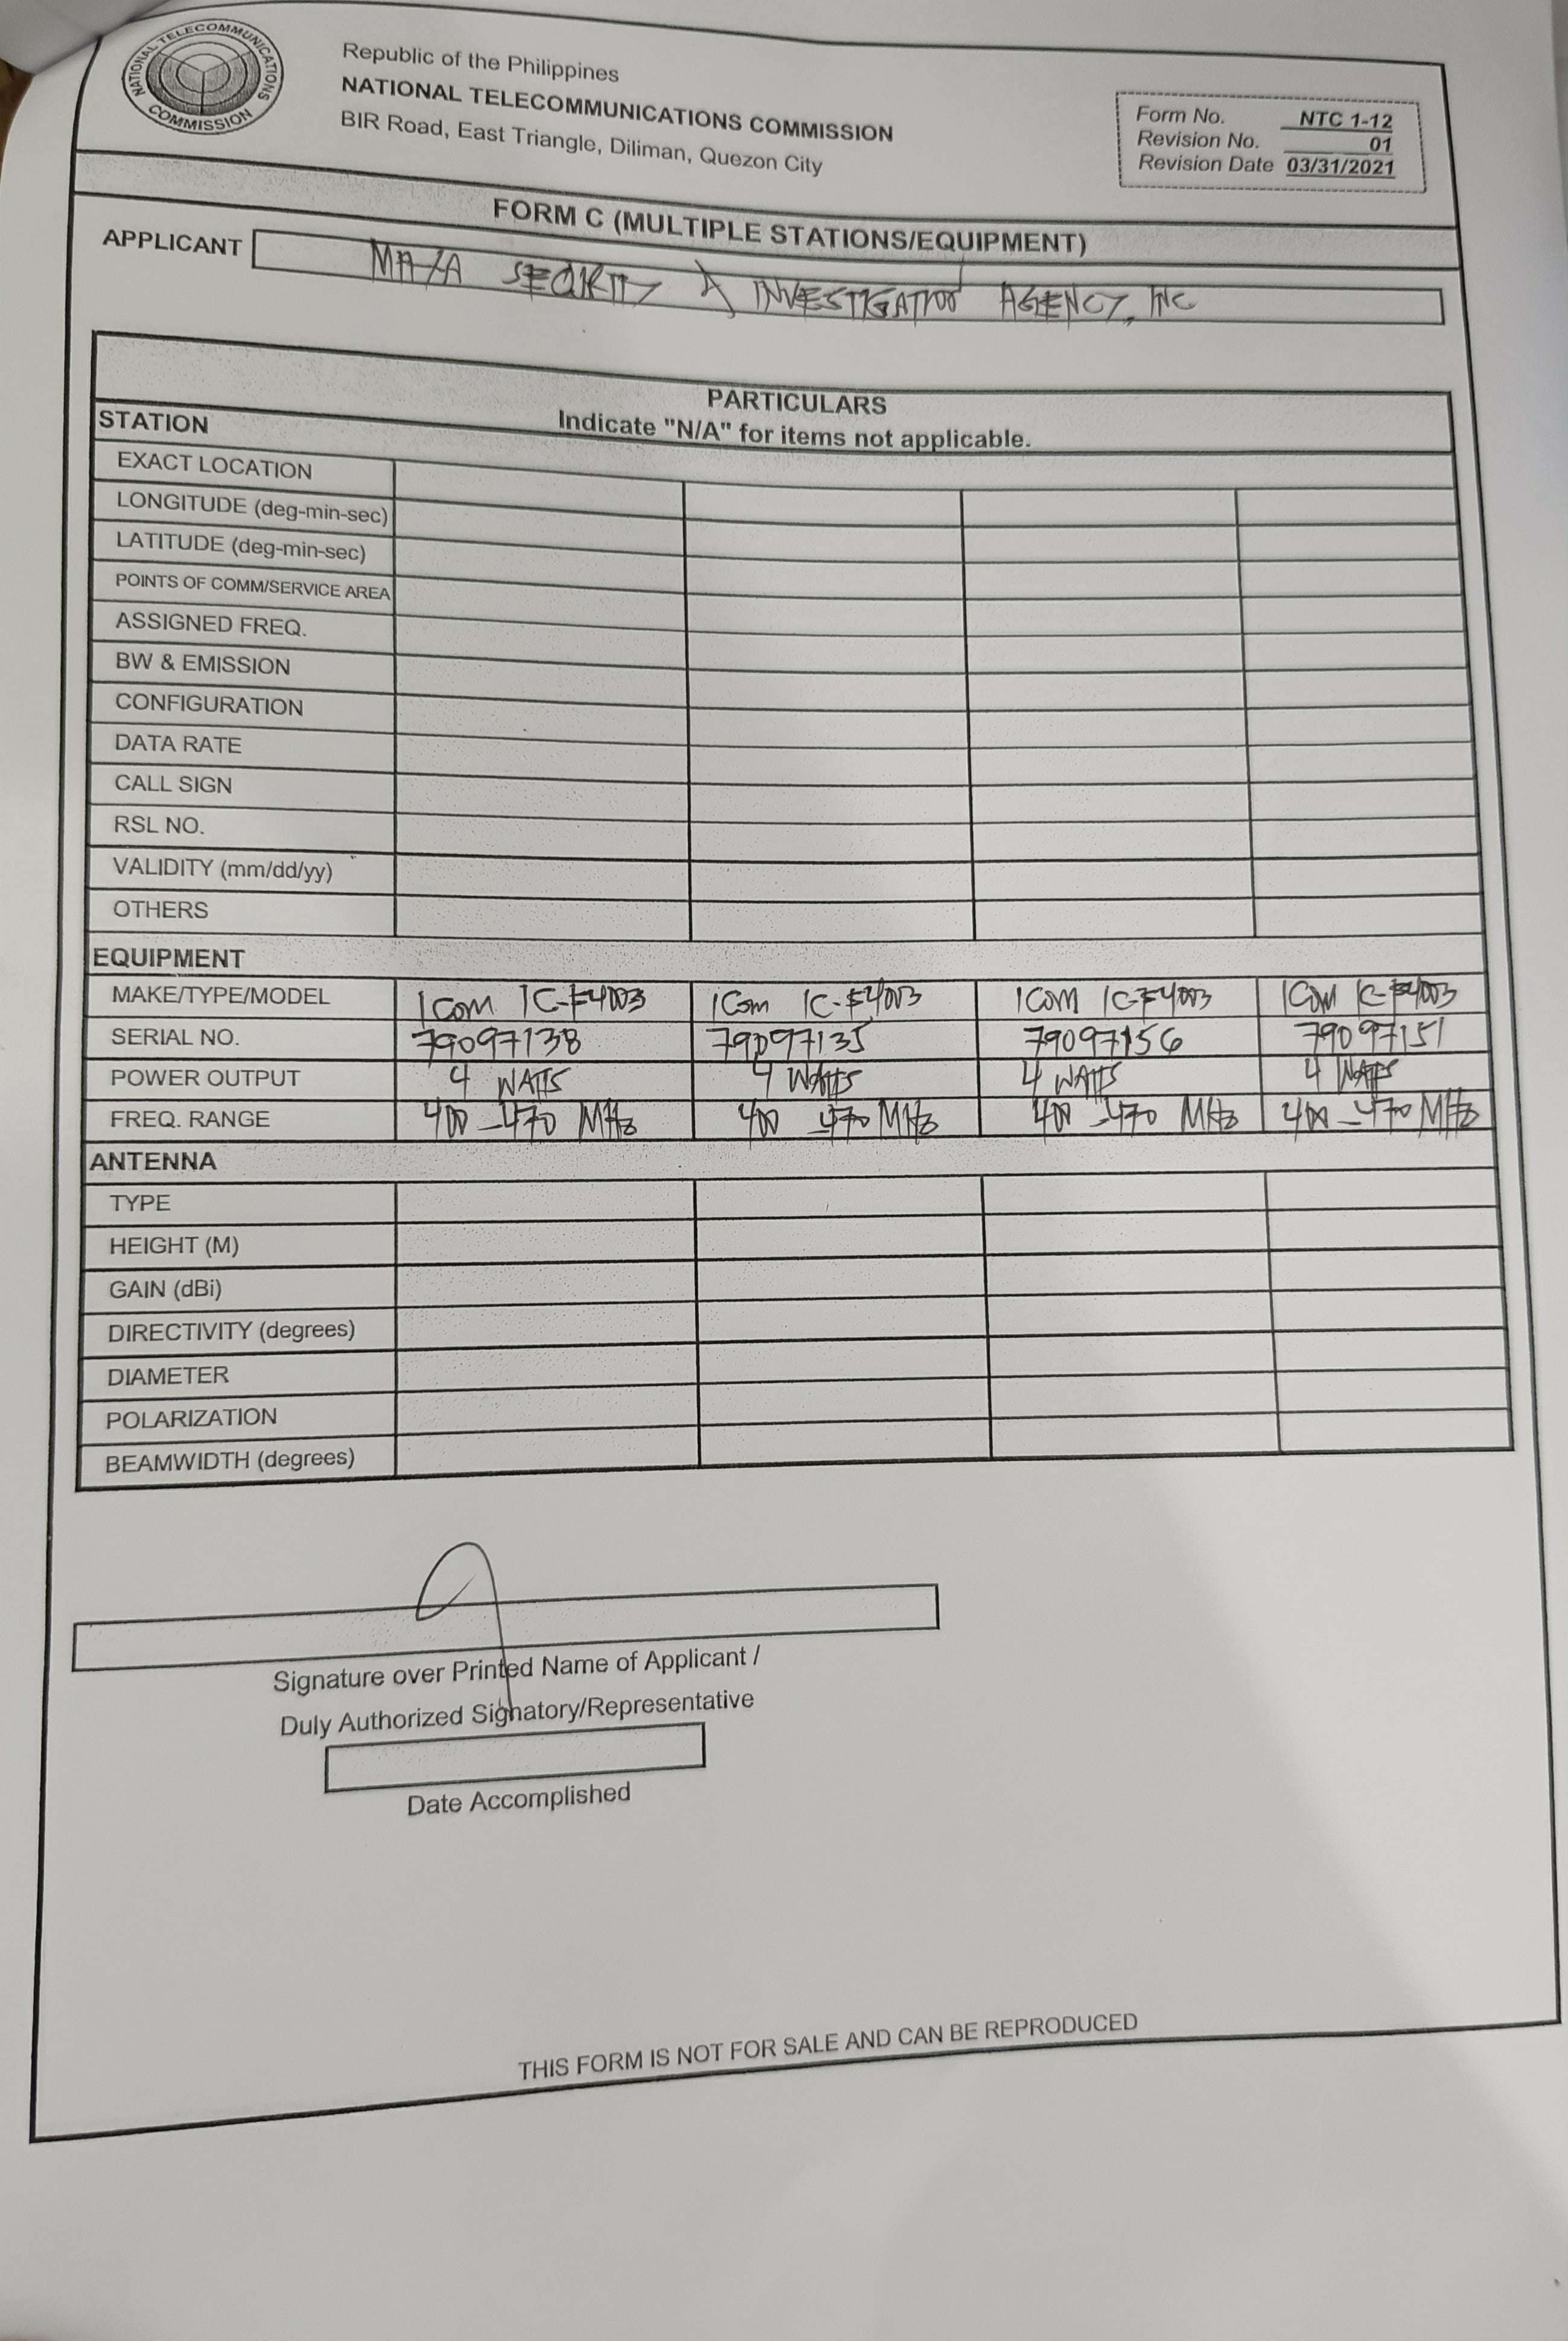 NATIONAL TELECOMMUNICATIONS COMMISSION
Republic of the Philippines
NATIONAL TELECOMMUNICATIONS COMMISSION
BIR Road, East Triangle, Diliman, Quezon City
Form No. NTC 1-12
Revision No. 01
Revision Date 03/31/2021
FORM C (MULTIPLE STATIONS/EQUIPMENT)
APPLICANT SECURITY & INVESTIGATION AGENCY, INC
PARTICULARS
Indicate "N/A" for items not applicable.
STATION
EXACT LOCATION
LONGITUDE (deg-min-sec)
LATITUDE (deg-min-sec)
POINTS OF COMM/SERVICE AREA
ASSIGNED FREQ.
BW & EMISSION
CONFIGURATION
DATA RATE
CALL SIGN
RSL NO.
VALIDITY (mm/dd/yy)
OTHERS
EQUIPMENT
MAKE/TYPE/MODEL ICom IC-F4003 ICom IC-F4003 ICOM IC-F4003 ICOM IC-F4003
SERIAL NO. 79097138 79097135 79097156 79097151
POWER OUTPUT 4 WATTS 4 WATTS 4 WATTS 4 WATTS
FREQ. RANGE 400-470 MHz 400-470 MHz 400-470 MHz 400-470 MHz
ANTENNA
TYPE
HEIGHT (M)
GAIN (dBi)
DIRECTIVITY (degrees)
DIAMETER
POLARIZATION
BEAMWIDTH (degrees)
Signature over Printed Name of Applicant /
Duly Authorized Signatory/Representative
Date Accomplished
THIS FORM IS NOT FOR SALE AND CAN BE REPRODUCED